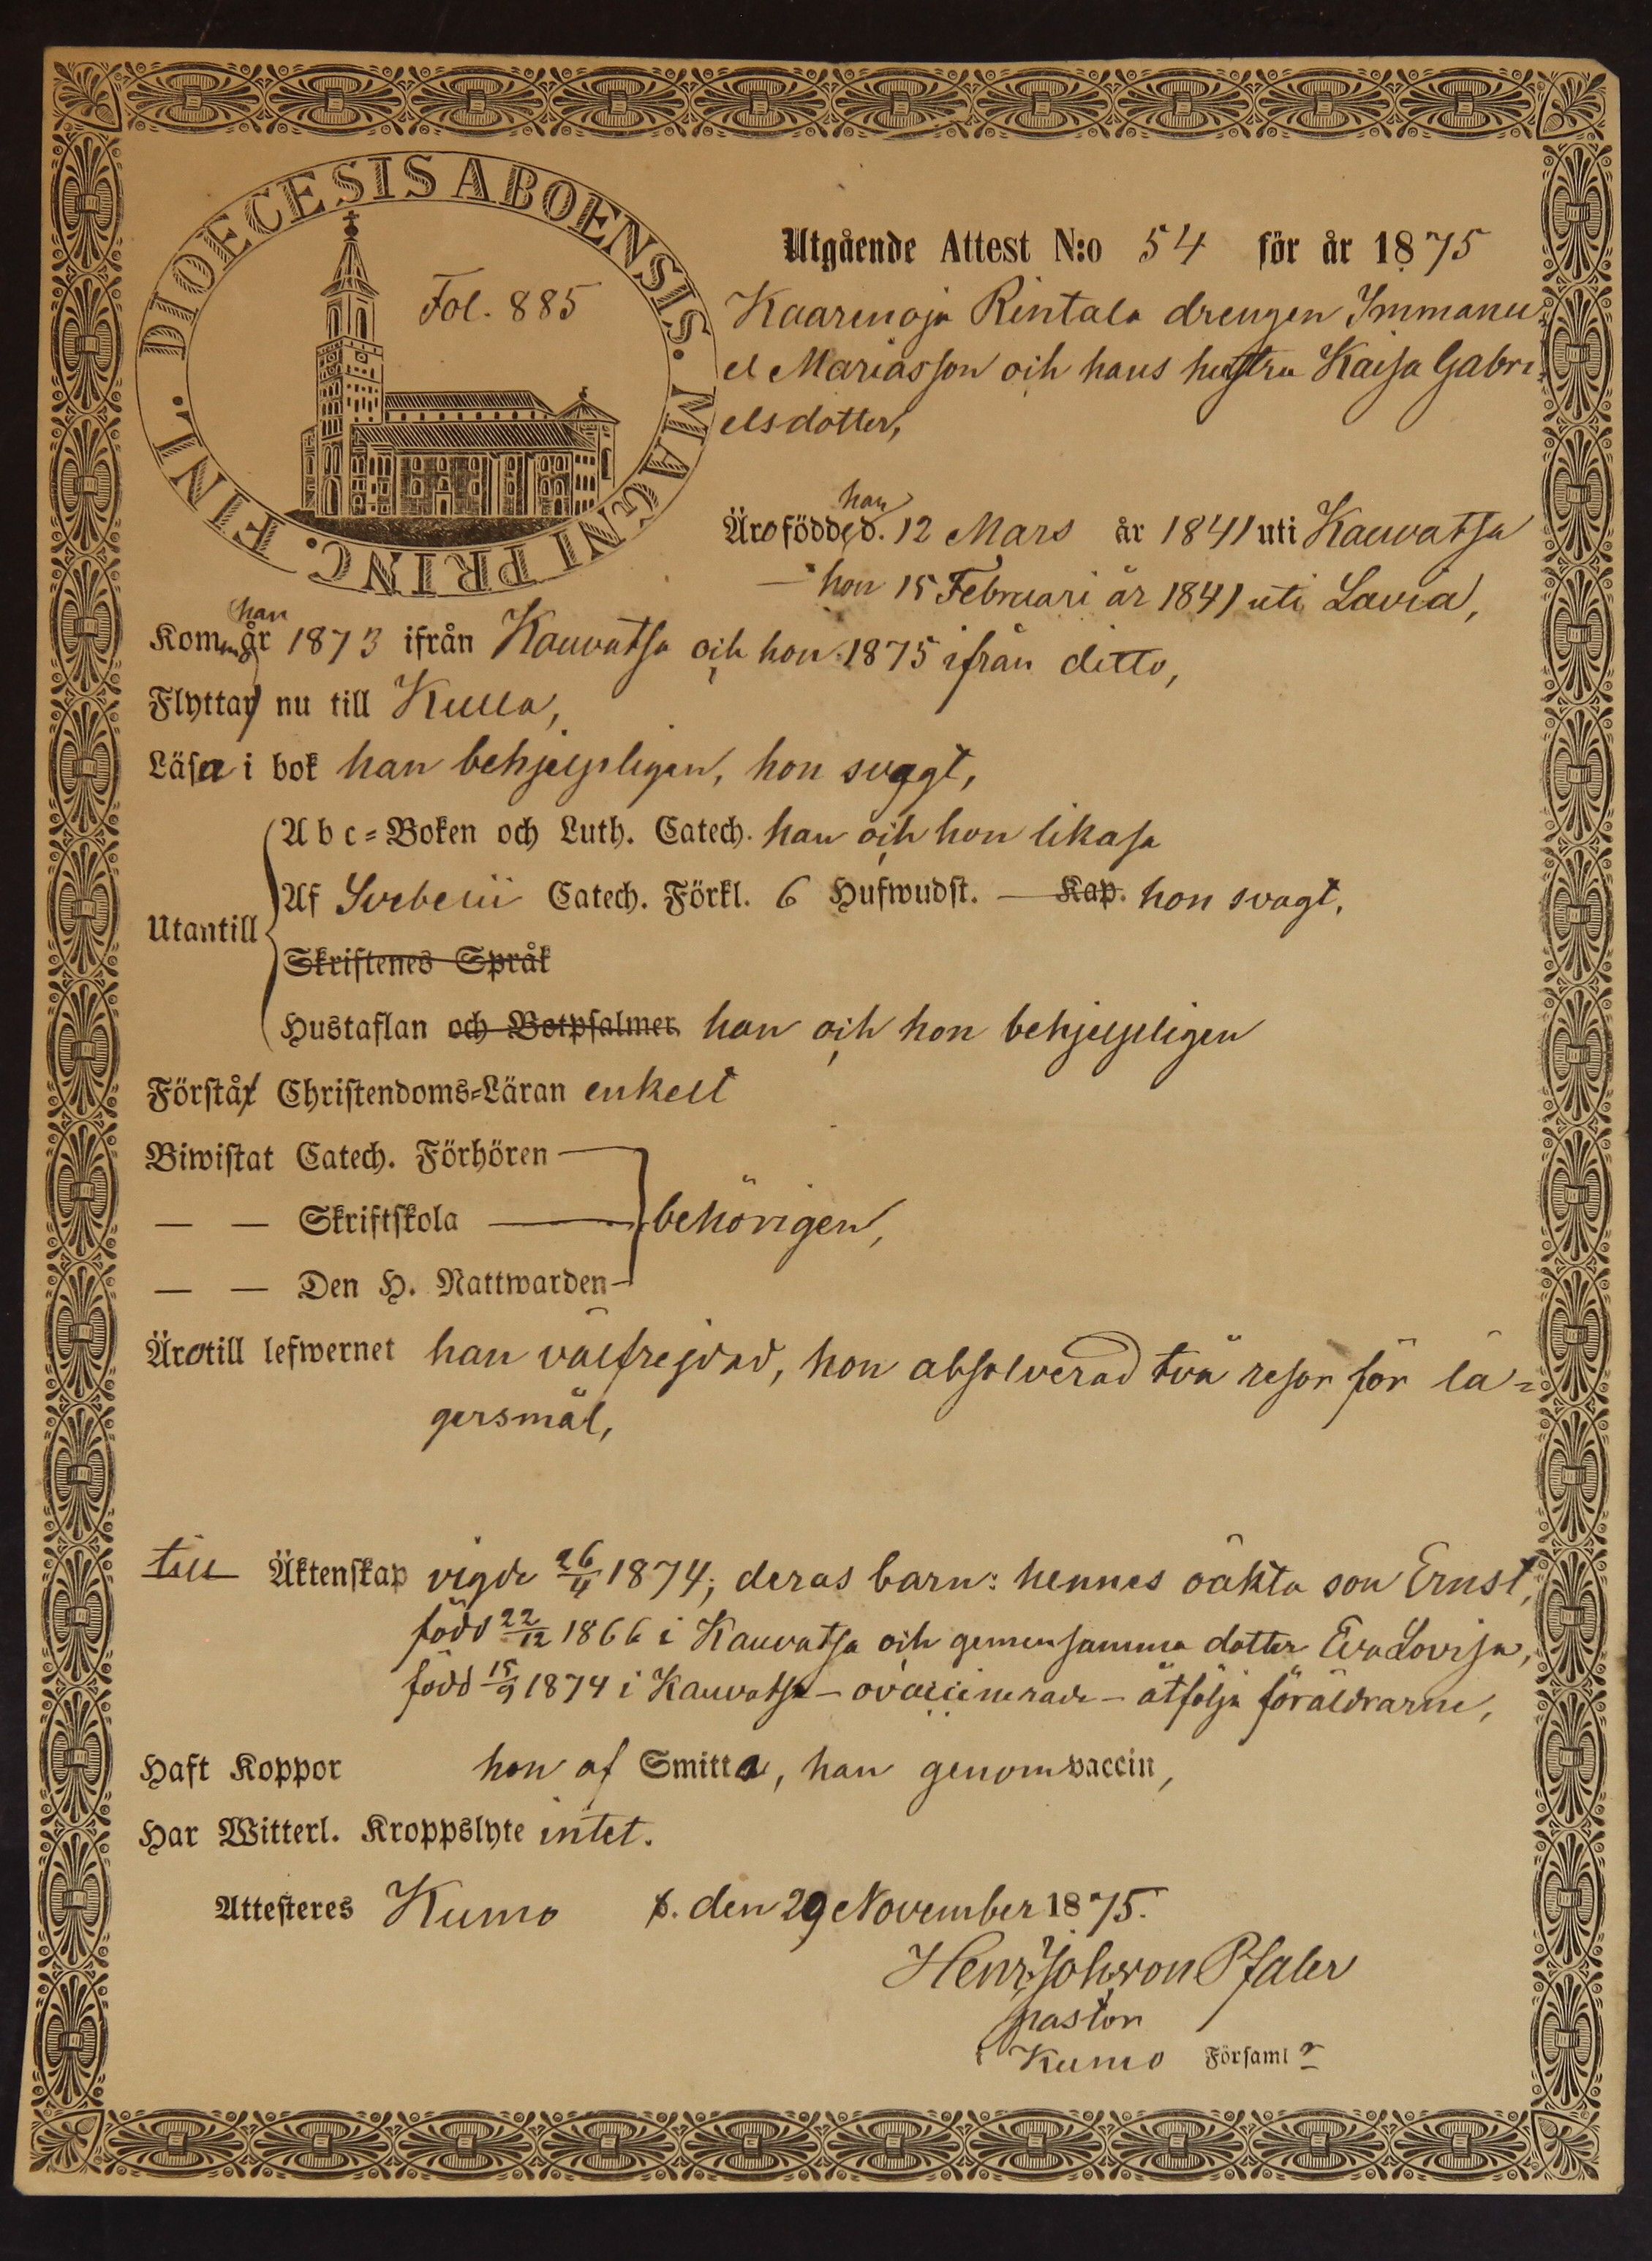 DIOECESIS ABOENSIS. MAGNI PRINC. FINL.
Fol. 885
Utgående Attest N:o 54 för år 1875
Kaarenoja Rintala drengen Immanu=
el Mariasson och hans hustru Kaisa Gabri=
elsdotter,
han
Äro födde d. 12 Mars år 1841 uti Kauvatsa
— hon 15 Februari år 1841 uti Lavia,
han
Komne år 1873 ifrån Kauvatsa och hon 1875 ifrån ditto,
Flyttar nu till Kulla,
Läsa i bok han behjelpligen, hon svagt,
Abc=Boken och Luth. Catech. han och hon likasa
Utantill
Af Svebelii Catech. Förkl. 6 Hufwudst. — Kap. hon svagt.
Skriftenes Språk
Hustaflan och Botpsalmer han och hon behjelpligen
Förstår Christendoms=Läran enkelt
Biwistat Catech. Förhören —
— — Skriftskola — behörigen,
— — Den H. Nattwarden —
Äro till lefwernet han välfrejdad, hon absolverad två resor för lä=
gersmål,
till Äktenskap vigde 26/4 1874; deras barn: hennes oäkta son Ernst,
född 22/12 1866 i Kauvatsa och gemensamma dotter Eva Lovisa,
född 15/9 1874 i Kauvatsa – ovaccinerade – åtfölja föräldrarne,
Haft Koppor hon af Smitta, han genom vaccin,
Har Witterl. Kroppslyte intet.
Attesteres Kumo p. den 29 November 1875.
Henr. Joh. von Pfaler
pastor
i Kumo Församl r